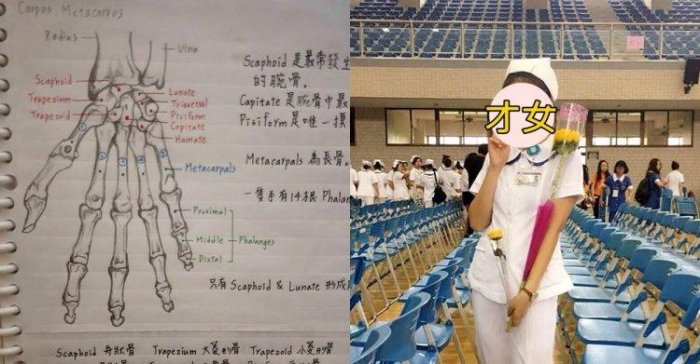 Carpus, Metacarpus
Radius
Ulna
Scaphoid 是最常發生
的腕骨。
Scaphoid
Lunate
Trapezium
Triquetral
Capitate 是腕骨中最
Trapezoid
Pisiform
Pisiform 是唯一摸
Capitate
Hamate
Metacarpals
Metacarpals 為長骨
一隻手有14根 Phalan
Proximal
Middle
Phalanges
Distal
只有 Scaphoid & Lunate 形成
Scaphoid 舟狀骨 Trapezium 大菱形骨 Trapezoid 小菱形骨
才女